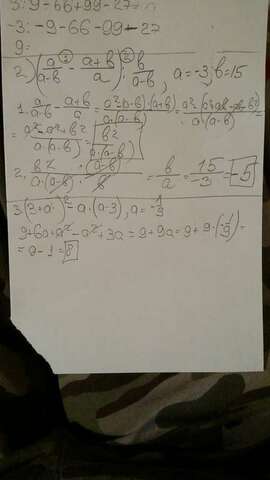 3: 9-66+99-27=
-3: -9-66-99-27
9=
2) (a/(a-b) - (a+b)/a) : b/(a-b), a=-3; b=15
1. a/(a-b) - (a+b)/a =
= (a²-a²+b²)/(a·(a-b)) = b²/(a·(a-b))
2. b²/(a·(a-b)) · (a-b)/b = b/a = 15/-3 = -5
3 (3+a)² - a·(a-3), a=-1/9
9+6a+a²-a²+3a=9+9a=9+9·(-1/9)=
=9-1=8